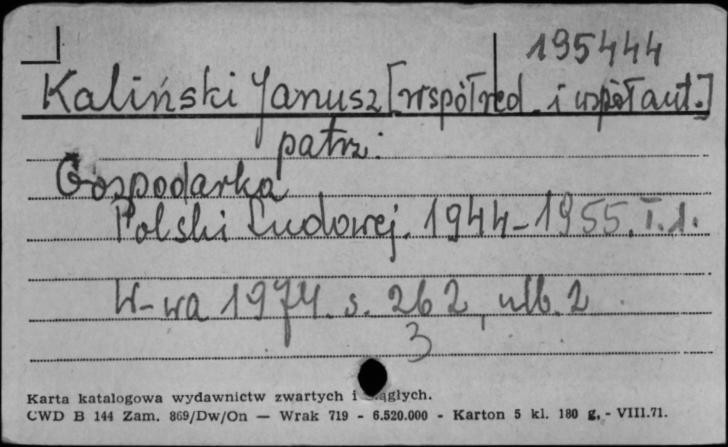 195444
Kaliński Janusz [współred. i współaut.]
patrz:
Gospodarka
Polski Ludowej. 1944-1955. T.1.
W-wa 1974. s. 262, nlb. 2
3
Karta katalogowa wydawnictw zwartych i
CWD B 144 Zam. 869/Dw/On — Wrak 719 - 6.520.000 - Karton 5 kl. 180 g. - VIII.71.